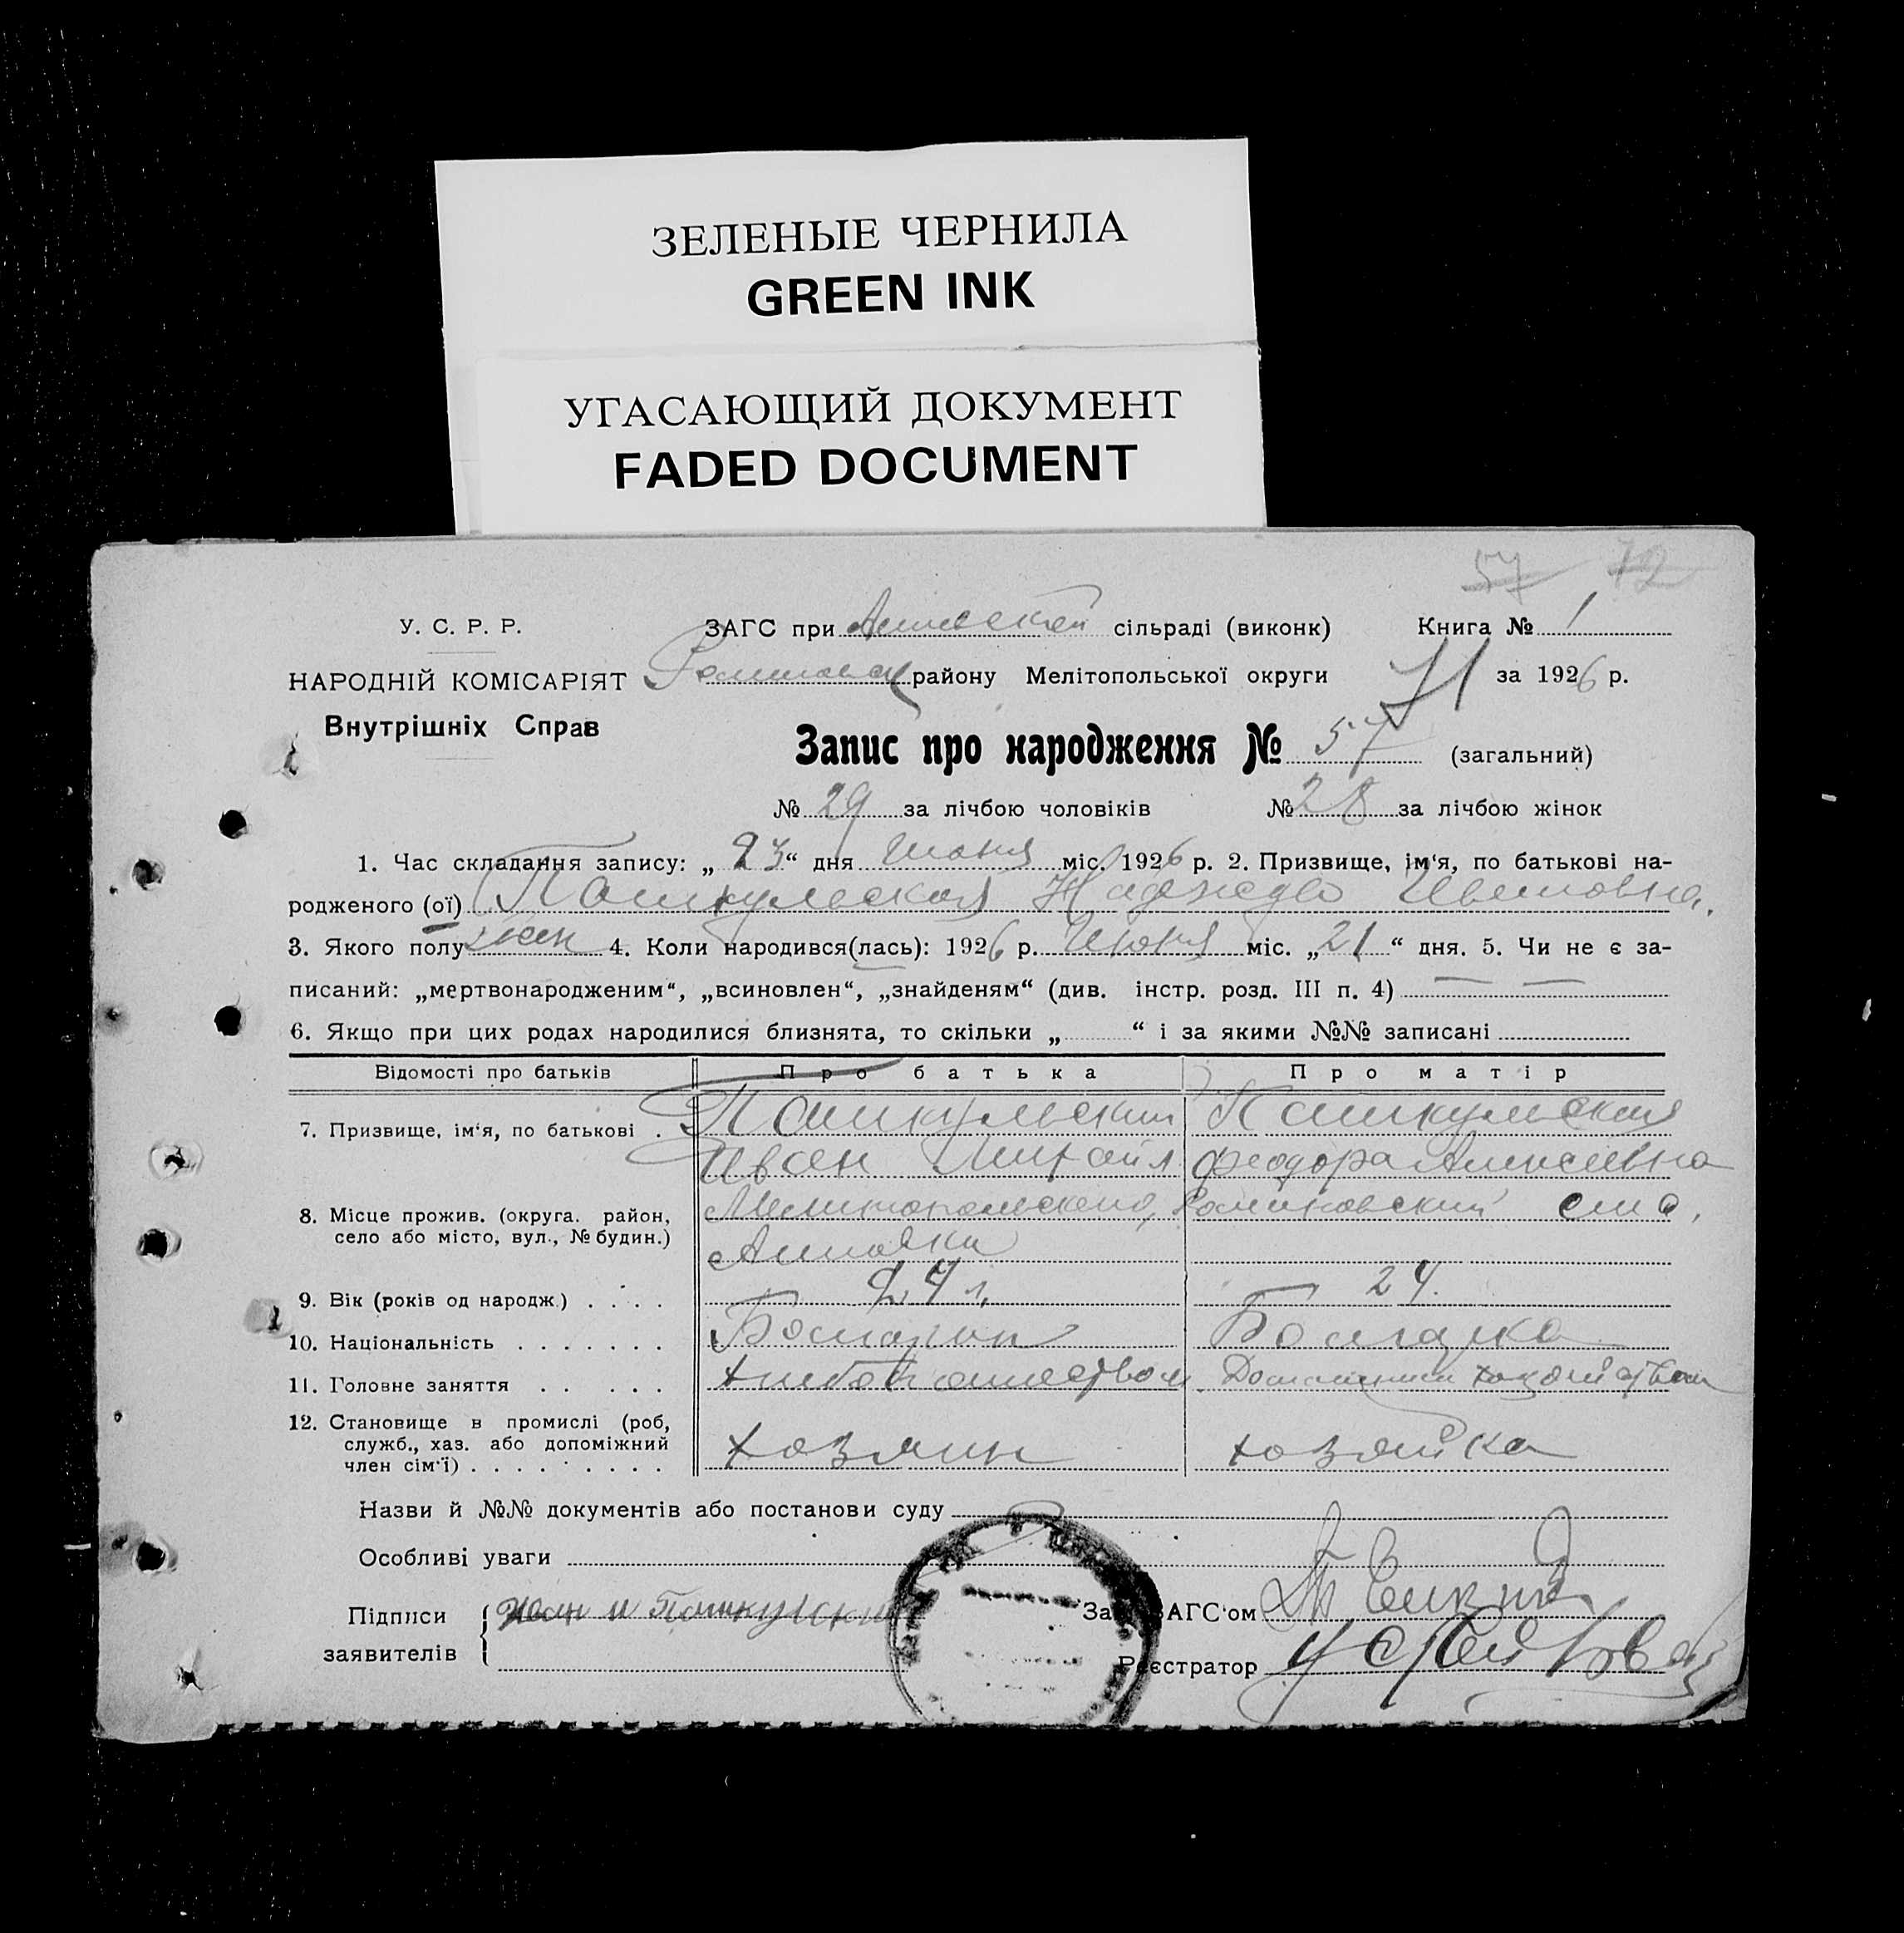 ЗЕЛЕНЫЕ ЧЕРНИЛА
GREEN INK
УГАСАЮЩИЙ ДОКУМЕНТ
FADED DOCUMENT
57 72
У. С. Р. Р. ЗАГС при сільраді (виконк) Книга № 1
НАРОДНІЙ КОМІСАРІЯТ району Мелітопольської округи 71 за 1926 р.
Внутрішніх Справ
Запис про народження № 57 (загальний)
№ 29 за лічбою чоловіків № 28 за лічбою жінок
1. Час складання запису: „23“ дня Июня міс. 1926 р. 2. Призвище, ім‘я, по батькові на-
родженого (ої) Пашкульская Надежда Ивановна.
3. Якого полу жен 4. Коли народився(лась): 1926 р. Июня міс. „21“ дня. 5. Чи не є за-
писаний: „мертвонародженим“, „всиновлен“, „знайденям“ (див. інстр. розд. III п. 4) — —
6. Якщо при цих родах народилися близнята, то скільки „ “ і за якими №№ записані
Відомості про батьків Про батька Про матір
7. Призвище, ім‘я, по батькові . Пашкульский Пашкульская
Иван Михайл Феодора Алексеевна
8. Місце прожив. (округа. район, Мелитопольского, село або місто, вул., № будин.)
9. Вік (років од народж.) . . . . 24 л. 24.
10. Національність . . . . . . . Болгарин Болгарка
11. Головне заняття . . . . . Хлебопашеством Домашним хозяйством
12. Становище в промислі (роб,
служб., хаз. або допоміжний
член сім‘ї) . . . . . . . . . хозяин хозяйка
Назви й №№ документів або постанови суду
Особливі уваги
Підписи Иван и Пашкульский Зав. ЗАГС‘ом
заявителів Реєстратор